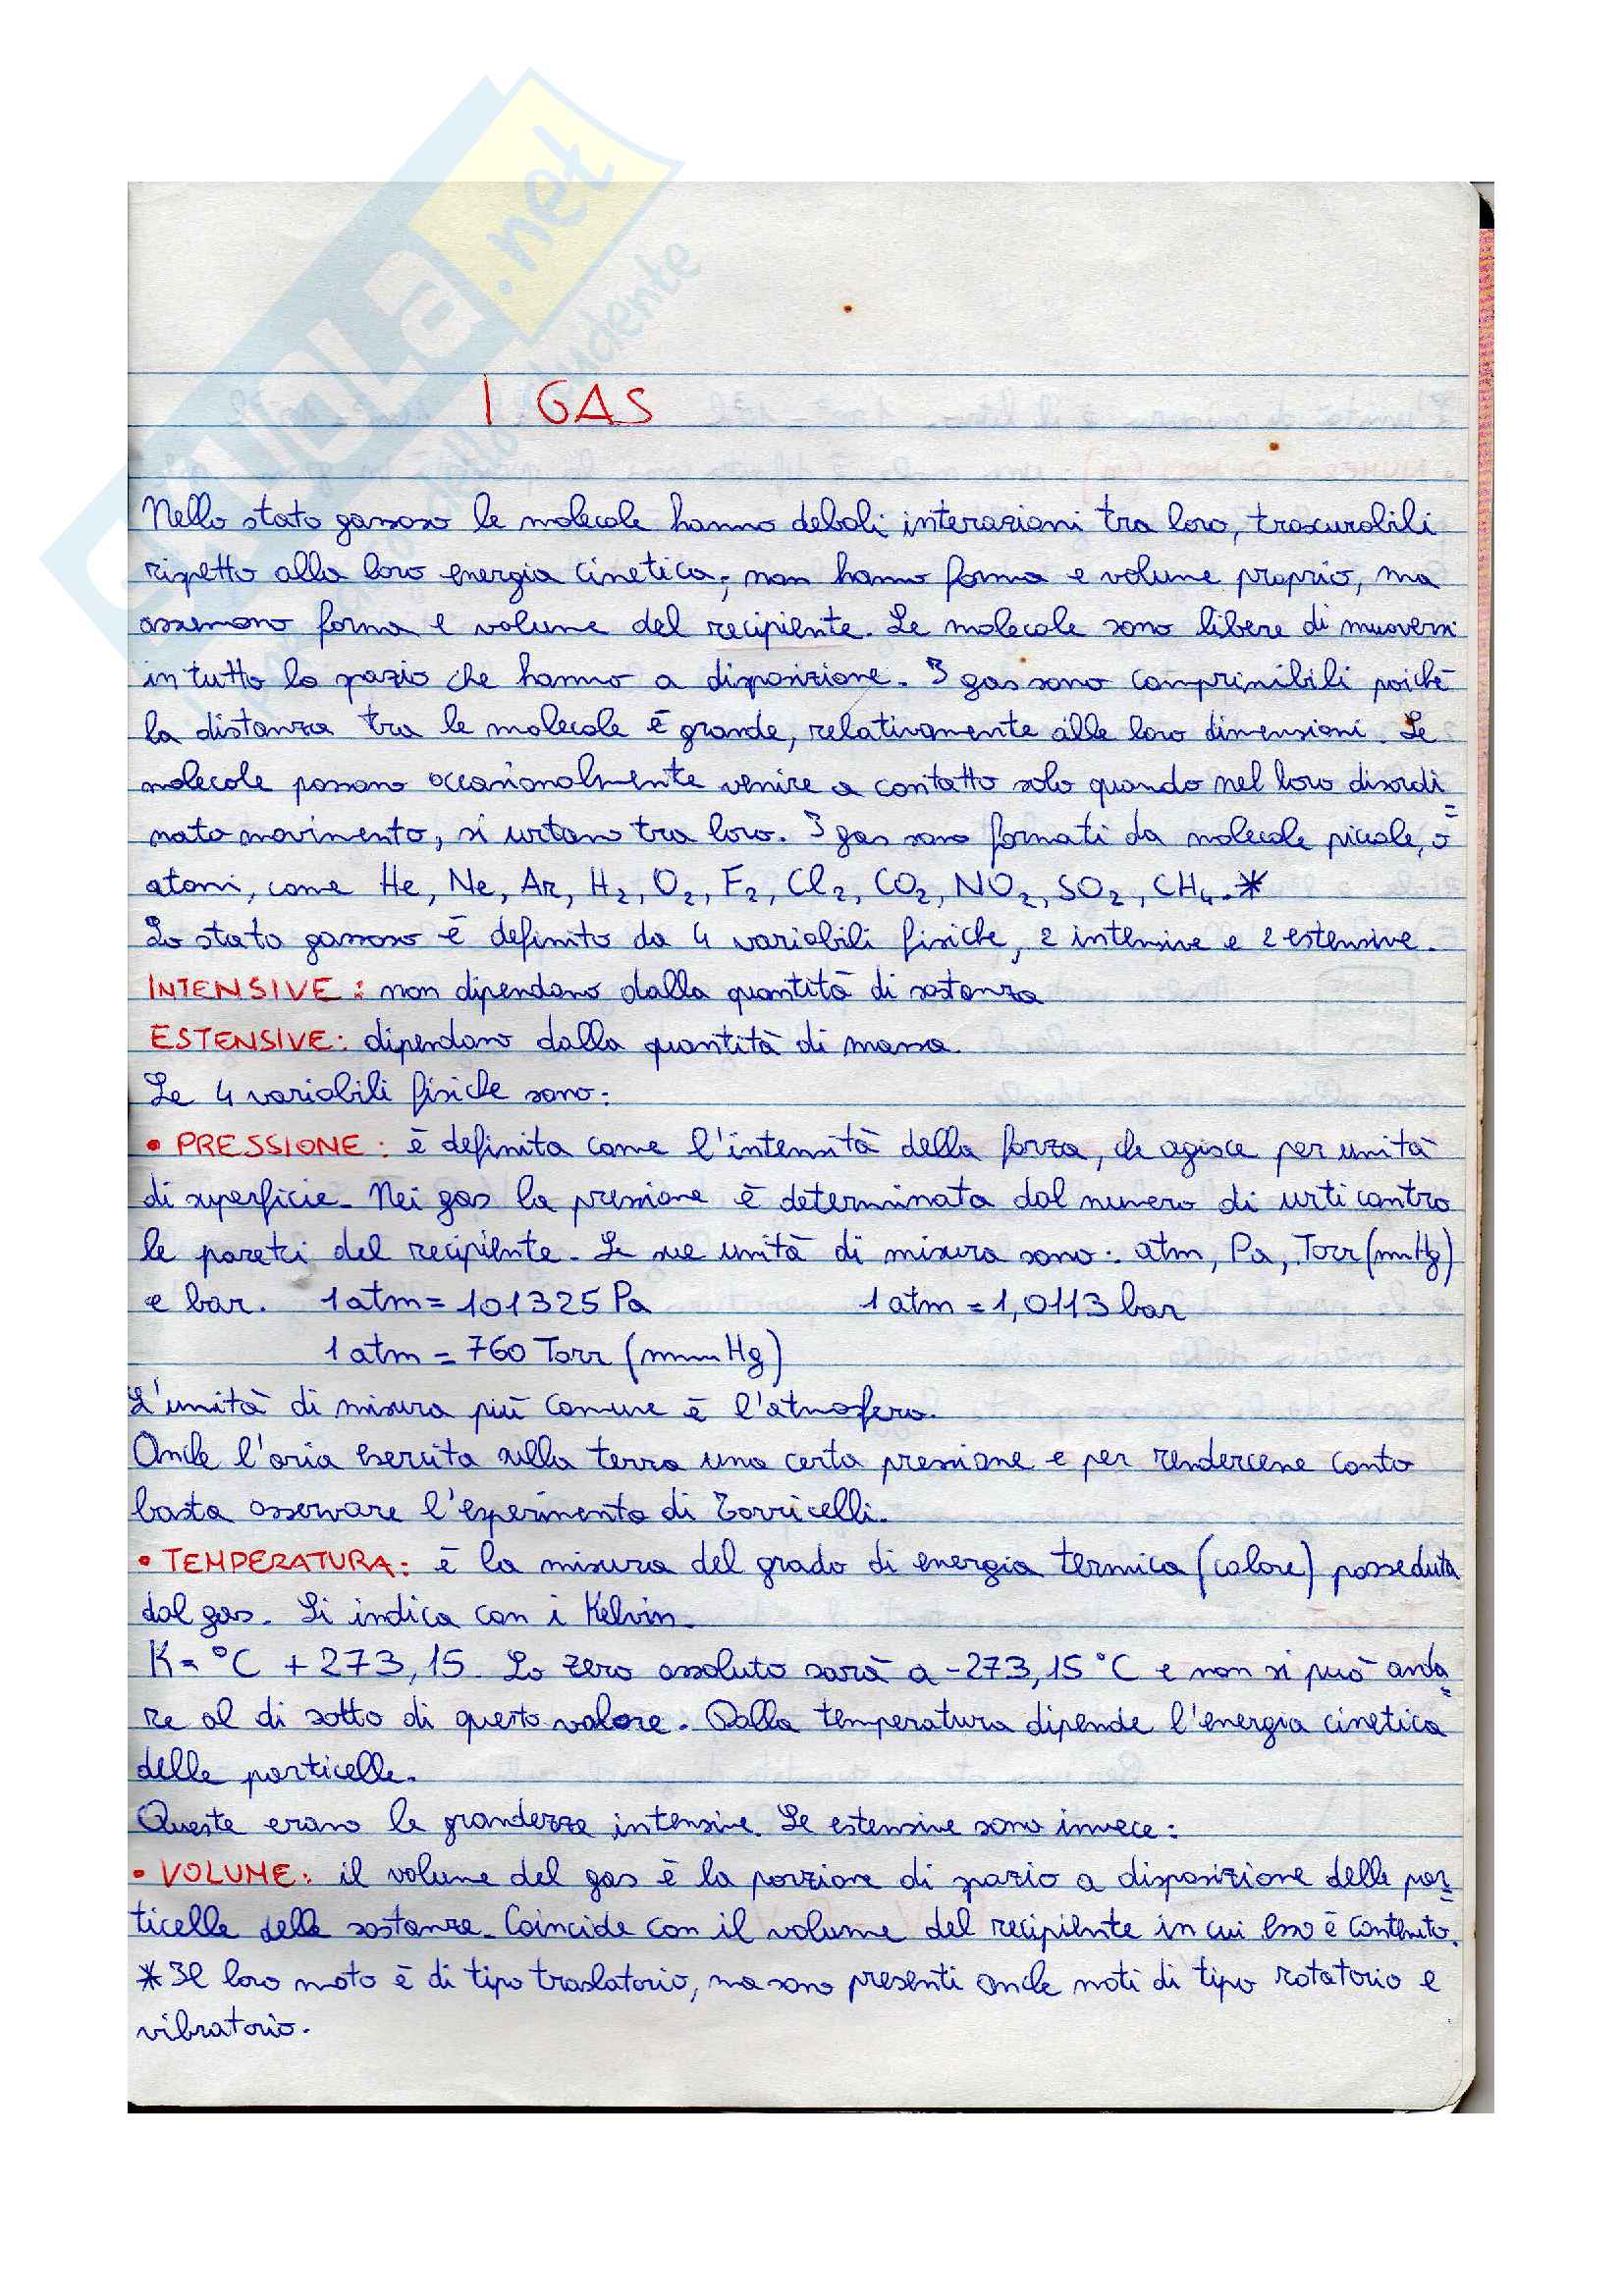 SKUOLA.net
I GAS
Nello stato gassoso le molecole hanno deboli interazioni tra loro, trascurabili
rispetto alla loro energia cinetica; non hanno forma e volume proprio, ma
assumono forma e volume del recipiente. Le molecole sono libere di muoversi
in tutto lo spazio che hanno a disposizione. I gas sono comprimibili poichè
la distanza tra le molecole è grande, relativamente alle loro dimensioni. Le
molecole possono occasionalmente venire a contatto solo quando nel loro disordi=
nato movimento, si urtano tra loro. I gas sono formati da molecole piccole, o
atomi, come He, Ne, Ar, H₂, O₂, F₂, Cl₂, CO₂, NO₂, SO₂, CH₄.*
Lo stato gassoso è definito da 4 variabili fisiche, 2 intensive e 2 estensive.
INTENSIVE: non dipendono dalla quantità di sostanza
ESTENSIVE: dipendono dalla quantità di massa.
Le 4 variabili fisiche sono:
• PRESSIONE: è definita come l'intensità della forza, che agisce per unità
di superficie. Nei gas la pressione è determinata dal numero di urti contro
le pareti del recipiente. Le sue unità di misura sono: atm, Pa, Torr (mmHg)
e bar. 1 atm = 101325 Pa 1 atm = 1,0113 bar
1 atm = 760 Torr (mmHg)
L'unità di misura più comune è l'atmosfera.
Anche l'aria esercita sulla terra una certa pressione e per rendercene conto
basta osservare l'esperimento di Torricelli.
• TEMPERATURA: è la misura del grado di energia termica (calore) posseduta
dal gas. Si indica con i Kelvin.
K = °C + 273,15. Lo zero assoluto sarà a -273,15 °C e non si può anda=
re al di sotto di questo valore. Dalla temperatura dipende l'energia cinetica
delle particelle.
Queste erano le grandezze intensive. Le estensive sono invece:
• VOLUME: il volume del gas è la porzione di spazio a disposizione delle par=
ticelle delle sostanze. Coincide con il volume del recipiente in cui esso è contenuto.
* Il loro moto è di tipo traslatorio, ma sono presenti anche moti di tipo rotatorio e
vibratorio.